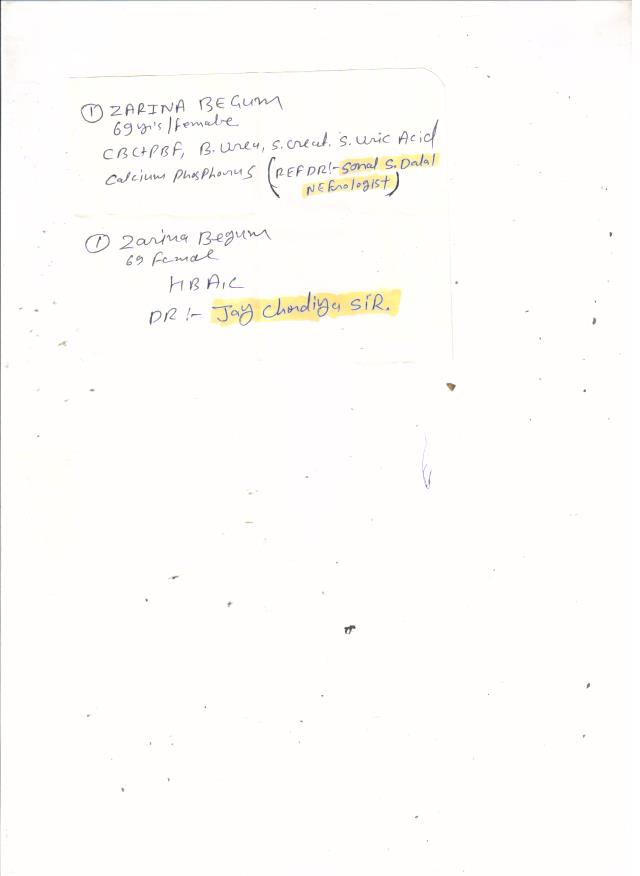 ① ZARINA BEGUM
69yrs/female
CBC+PBF, B. Urea, S. creat. S. Uric Acid
Calcium Phosphorus (REFDR:- Sonal S. Dalal
NEfrologist)
① Zarina Begum
69 Female
HBA1C
DR:- Jay Chordiya SIR.